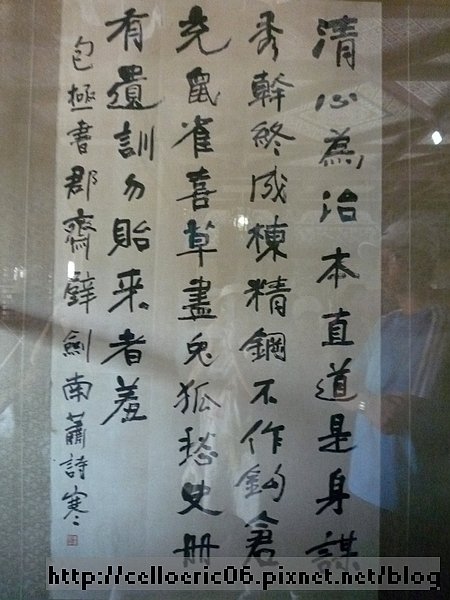 清心為治本直道是身謀
秀幹終成棟精鋼不作鈎倉
充鼠雀喜草盡兔狐愁史册
有遺訓勿貽来者羞
包極書郡齋壁劍南蕭詩寒
http://celloeric06.pixnet.net/blog